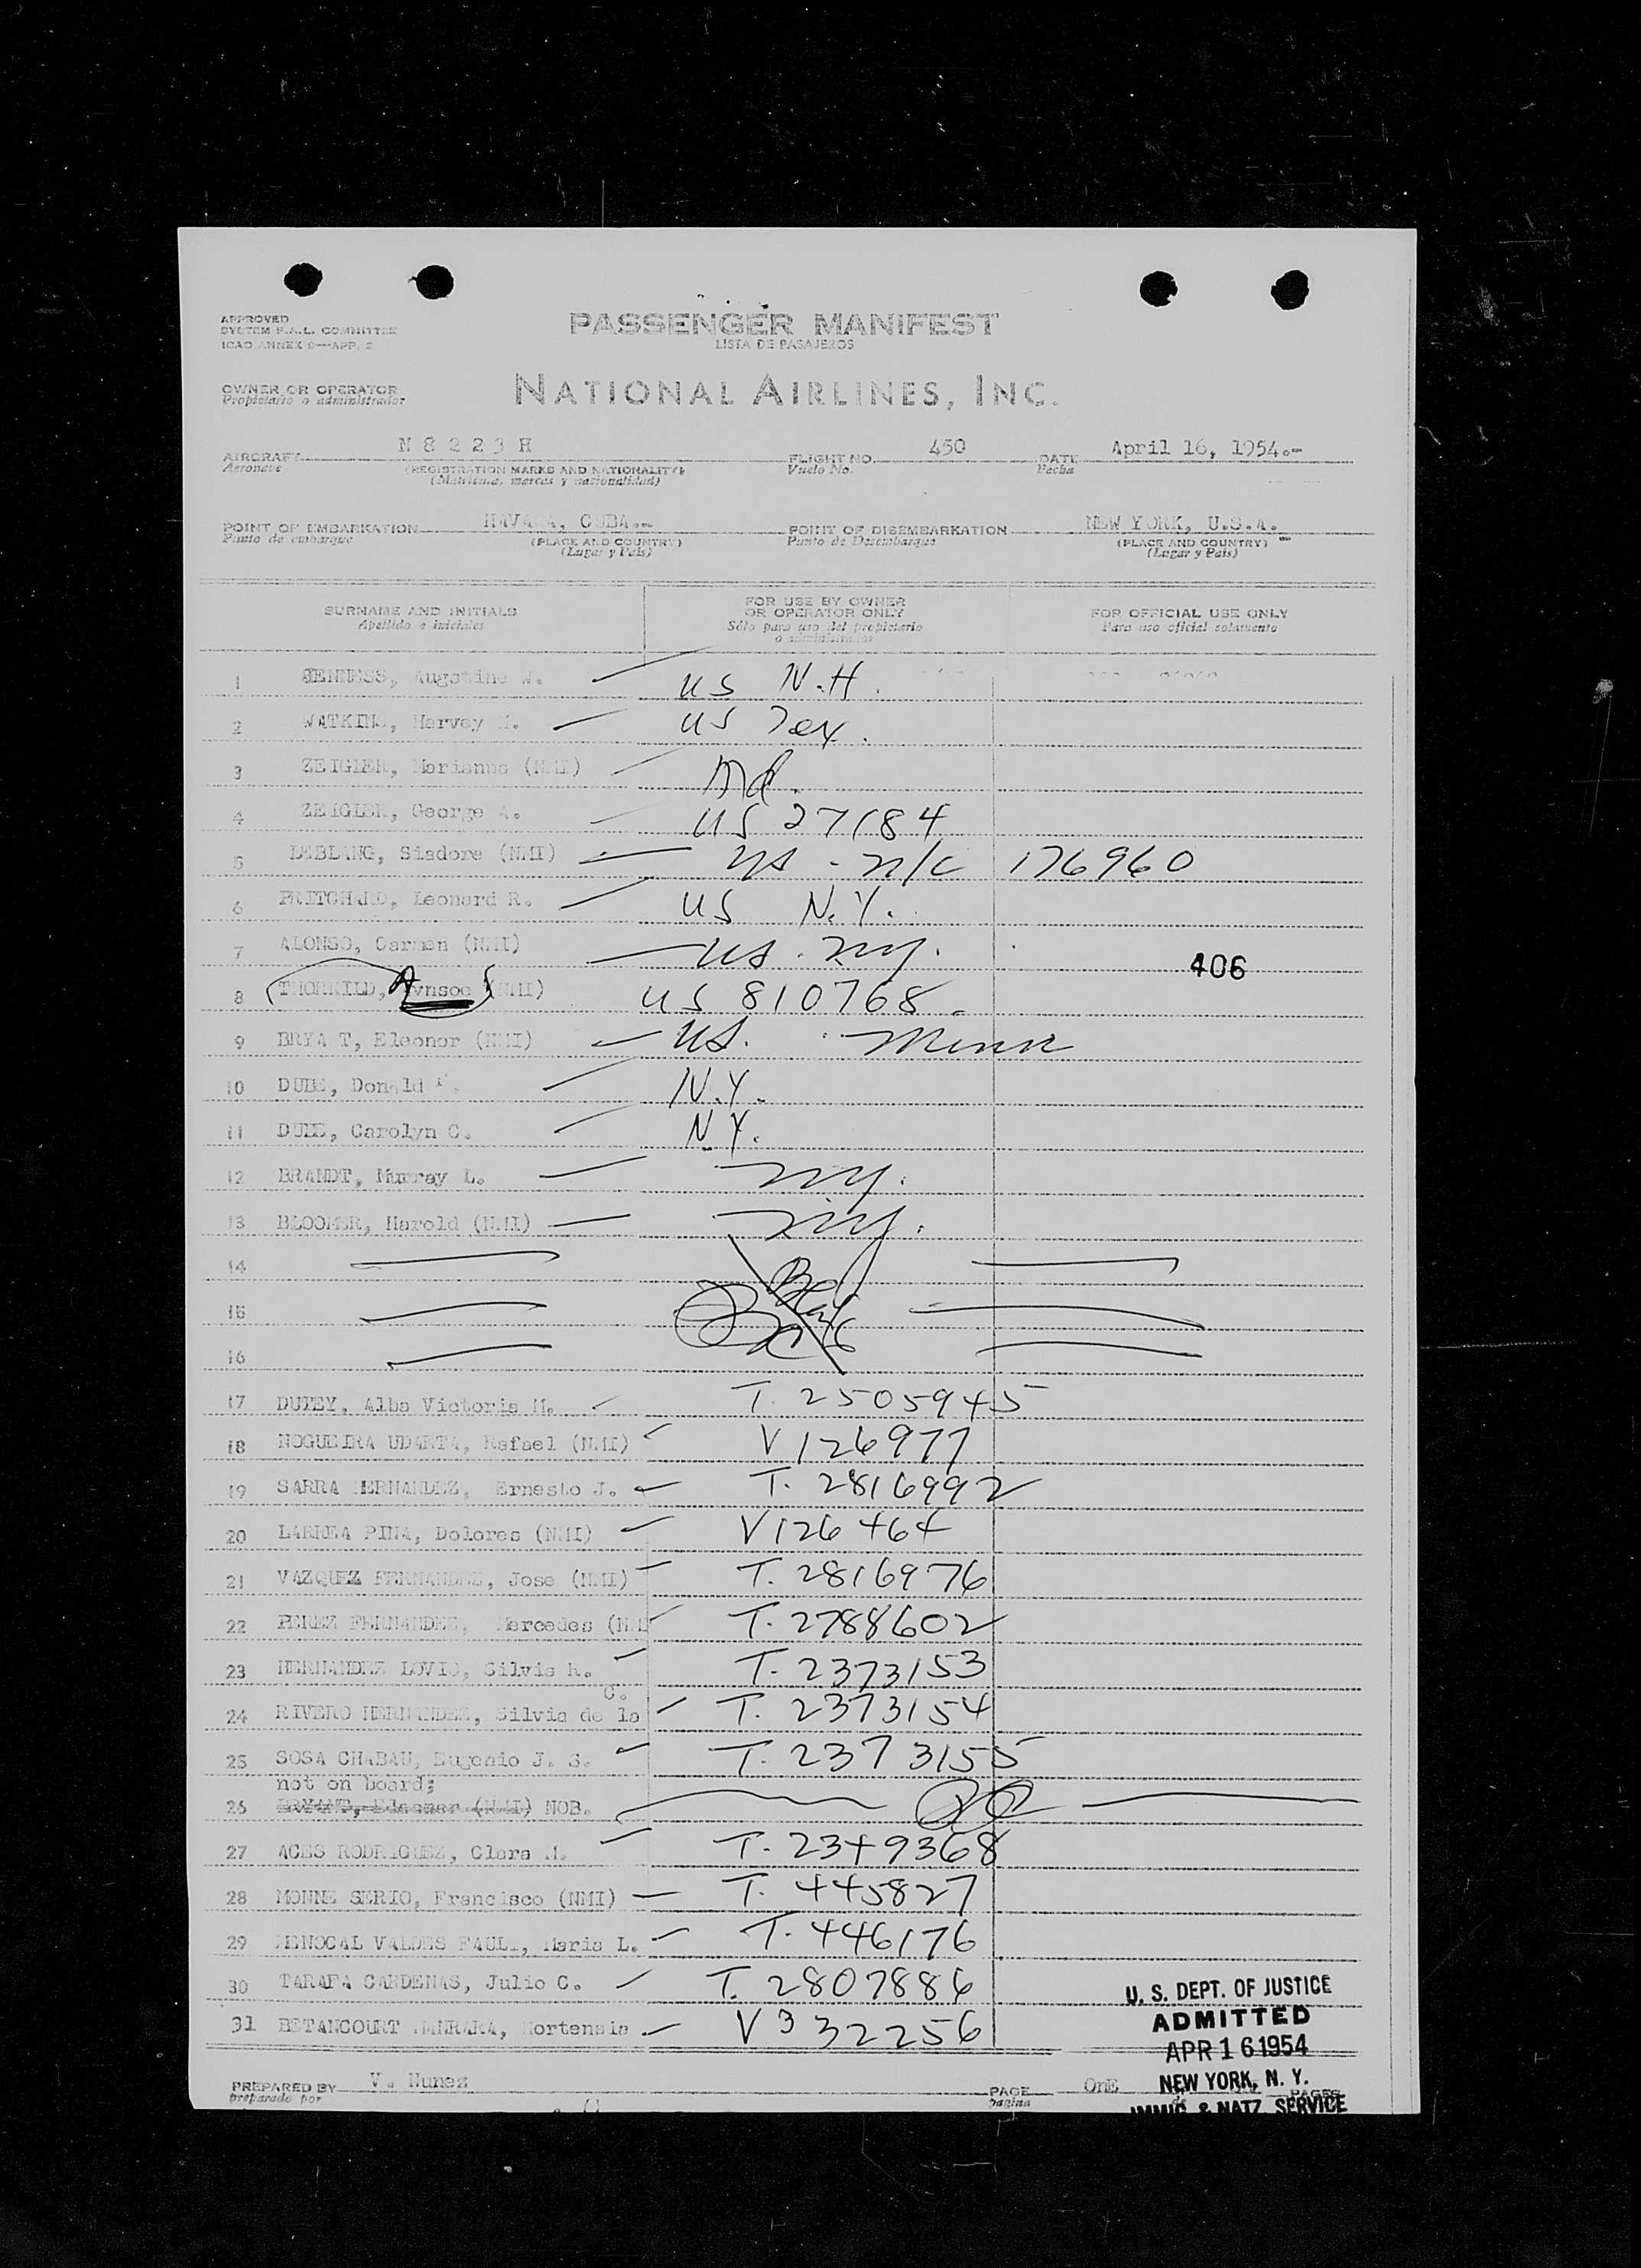 APPROVED
SYSTEM F.A.L. COMMITTEE
ICAO ANNEX 9—APP. 2
PASSENGER MANIFEST
LISTA DE PASAJEROS
OWNER OR OPERATOR
Propietario o administrador
NATIONAL AIRLINES, INC.
AIRCRAFT N 8 2 2 3 H FLIGHT NO. 450 DATE April 16, 1954.-
Aeronave (REGISTRATION MARKS AND NATIONALITY) Vuelo No. Fecha
(Matricula, marcas y nacionalidad)
POINT OF EMBARKATION HAVANA, CUBA.- POINT OF DISEMBARKATION NEW YORK, U.S.A.-
Punto de embarque (PLACE AND COUNTRY) Punto de Desembarque (PLACE AND COUNTRY)
(Lugar y Pais) (Lugar y Pais)
SURNAME AND INITIALS FOR USE BY OWNER OR OPERATOR ONLY FOR OFFICIAL USE ONLY
Apellido e iniciales Sólo para uso del propietario o administrador Para uso oficial solamente
1 JENNESS, Augstine W. US N.H.
2 WATKINS, Harvey US Tex.
3 ZEIGLER, Marianna (NMI) Md.
4 ZEIGLER, George A. US 27184
5 LEBLANG, Siadore (NMI) US - N/C 176960
6 PRITCHARD, Leonard R. US N.Y.
7 ALONSO, Carmen (NMI) US. NY.
406
8 THORKILD, Aynsoe (NMI) US 810768.
9 BRYA T, Eleonor (NMI) US. Minn
10 DUBE, Donald N.Y.
11 DUBE, Carolyn C. N.Y.
12 BRANDT, Murray L. NY.
13 BLOOMER, Harold (NMI) NY.
14
15
16
17 DUTEY, Alba Victoria M. T. 2505945
18 NOGUEIRA UDAETA, Rafael (NMI) V 126977
19 SARRA HERNANDEZ, Ernesto J. T. 2816992
20 LARREA PINA, Dolores (NMI) V126464
21 VAZQUEZ FERNANDEZ, Jose (NMI) T. 2816976
22 PEREZ FERNANDEZ, Mercedes (NMI T. 2788602
23 HERNANDEZ LOVIO, Silvia R. T. 2373153
C.
24 RIVERO HERNANDEZ, Silvia de la T. 2373154
25 SOSA CHABAU, Eugenio J. S. T. 2373155
not on board;
26 BRYANT, Eleanor (NMI) NOB.
27 ACES RODRIGUEZ, Clara M. T. 2349368
28 MONNE SERIO, Francisco (NMI) T. 445827
29 MENOCAL VALDES FAULI, Maria L. T. 446176
30 TARAFA CARDENAS, Julio C. T. 2807886
31 BETANCOURT Hortensia V332256
U. S. DEPT. OF JUSTICE
ADMITTED
APR 16 1954
NEW YORK, N. Y.
IMMIG. & NATZ. SERVICE
PREPARED BY V. Nunez PAGE OnE PAGES
preparado por pagina